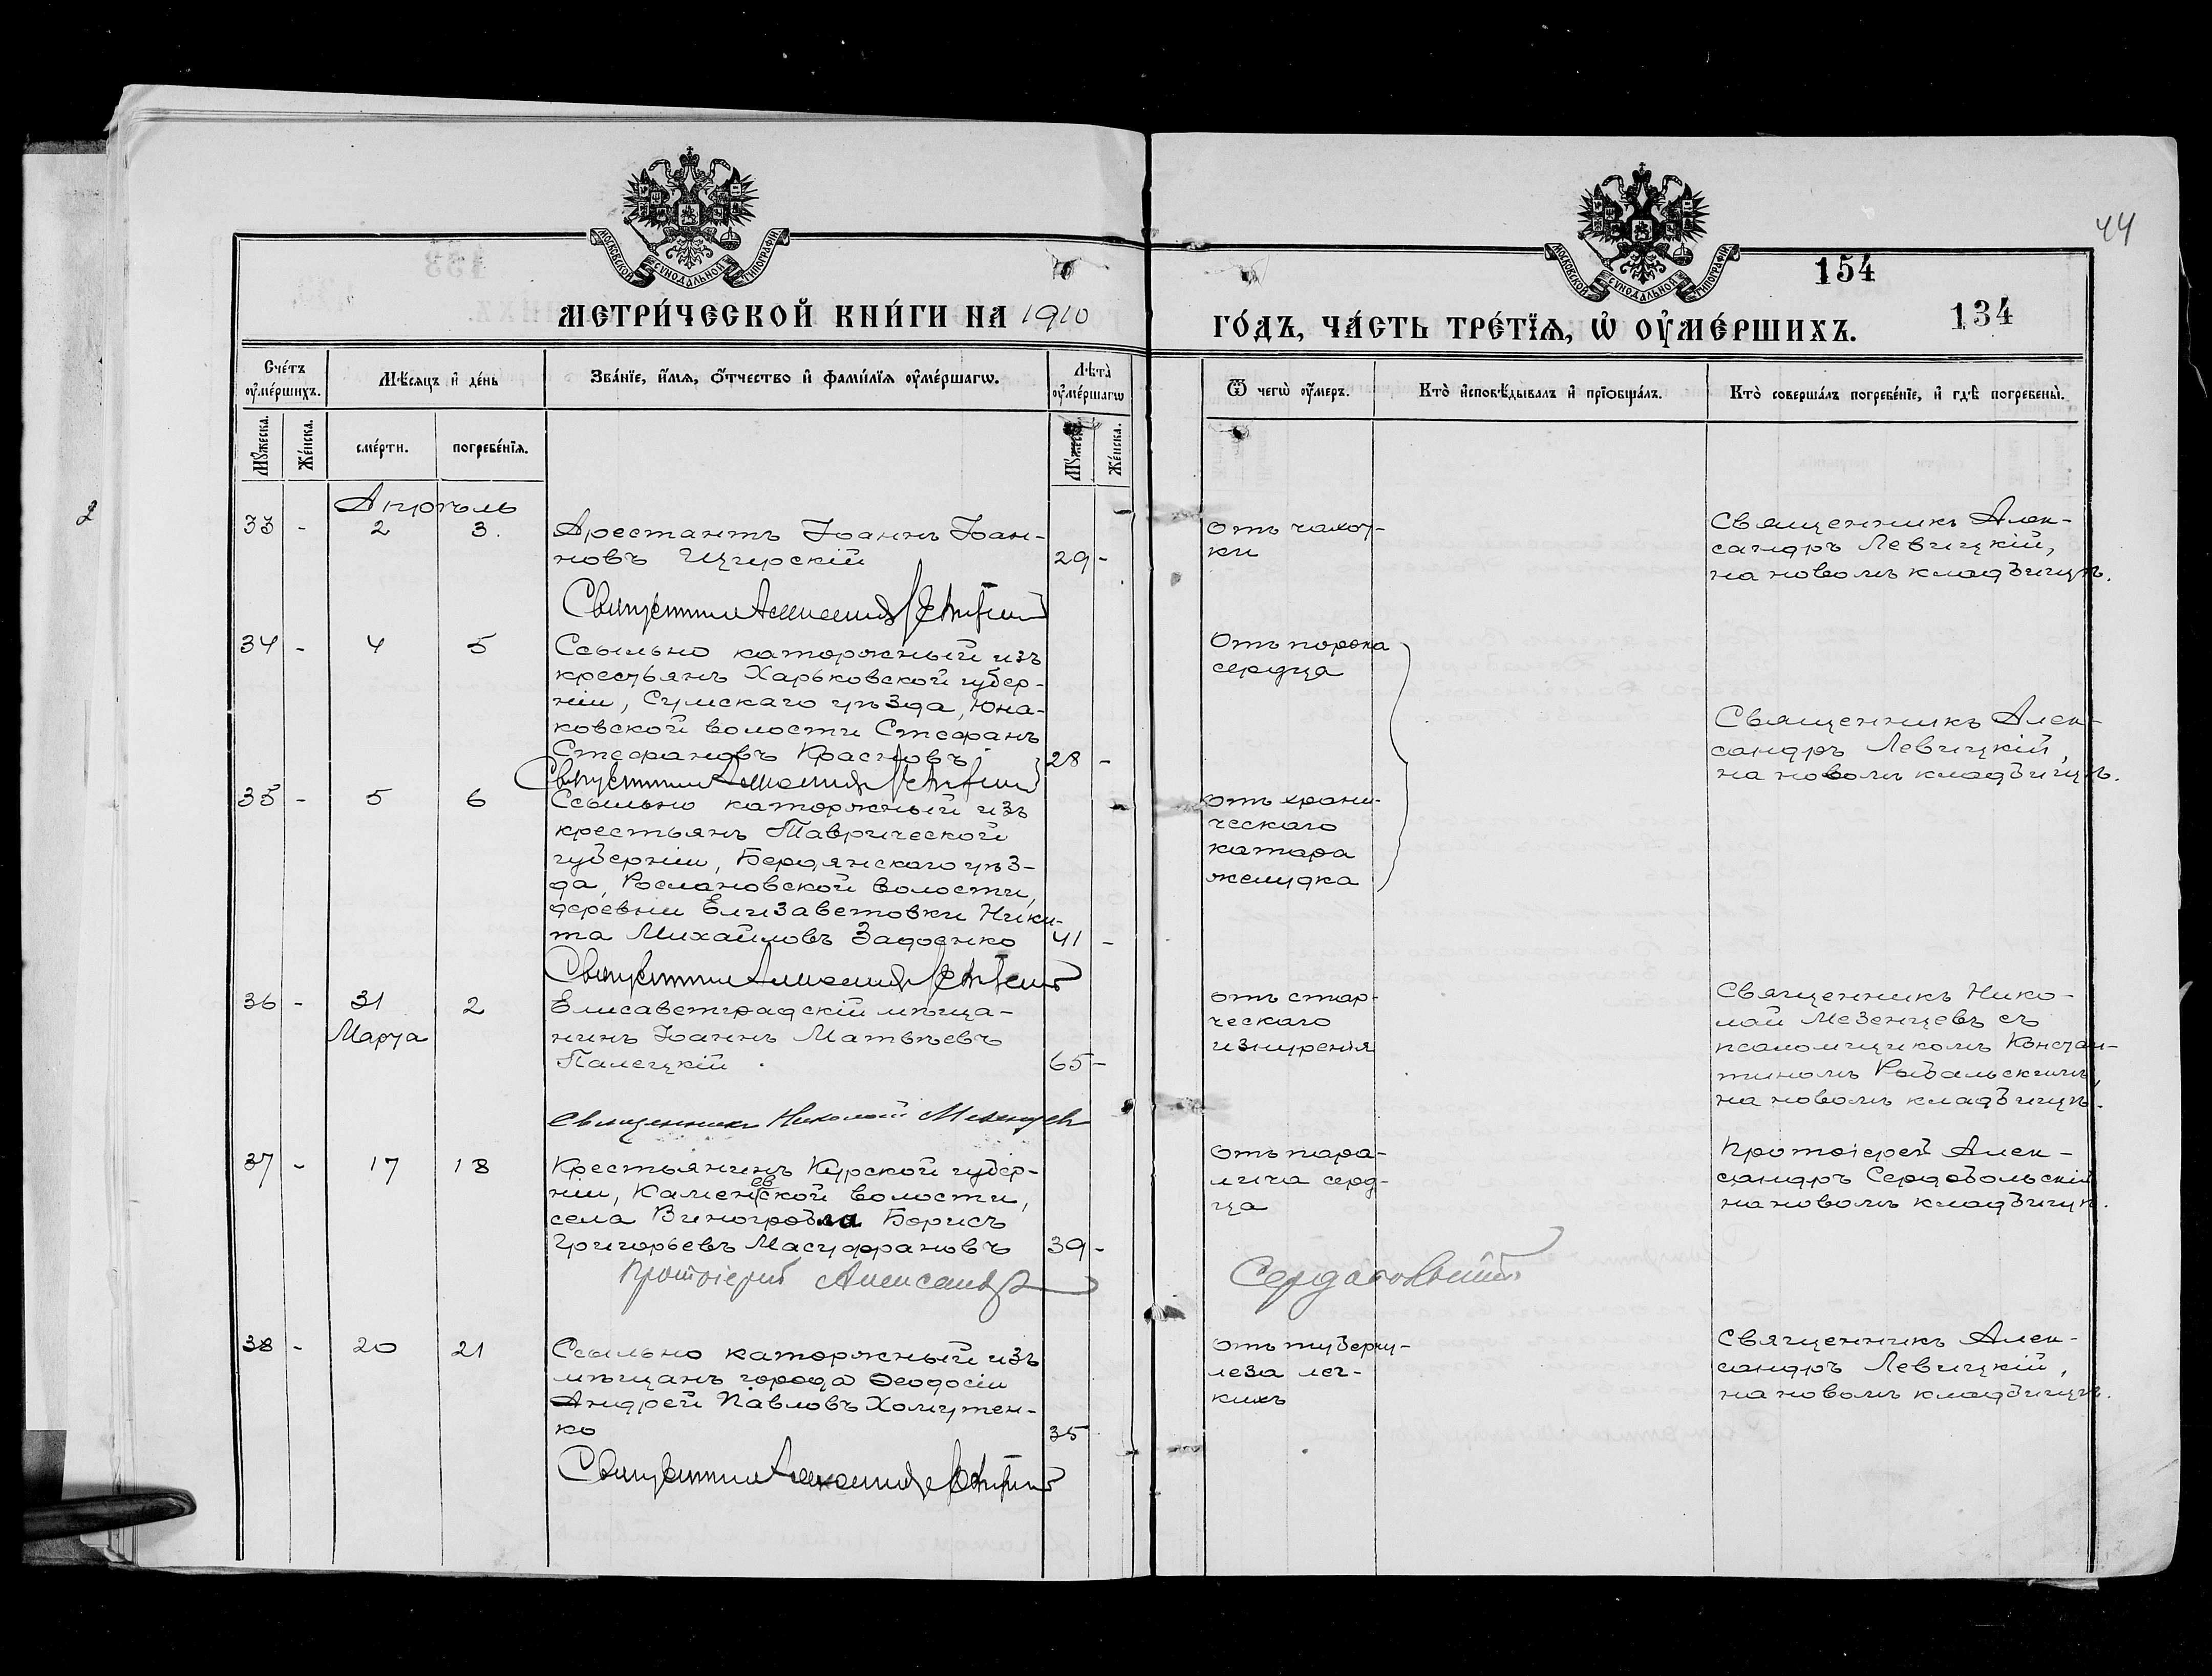 44
154
134
МОСКОВСКОЙ СѴНОДАЛЬНОЙ ТИПОГРАФІИ
МОСКОВСКОЙ СѴНОДАЛЬНОЙ ТИПОГРАФІИ
МЕТРИ́ЧЕСКОЙ КНИ́ГИ НА 1910
ГО́ДЪ, ЧА́СТЬ ТРЕ́ТЇѦ, Ѡ҆ ОУ҆МЕ́РШИХЪ.
Сче́тъ оу҆ме́ршихъ.
Мѣ́сяцъ и҆ де́нь
Зва́нїе, и҆́мѧ, ѻ҆́тчество и҆ фами́лїѧ оу҆ме́ршагѡ.
Лѣта̀ оу҆ме́ршагѡ
Ѿ чегѡ̀ оу҆́меръ.
Кто̀ и҆сповѣ́дывалъ и҆ прїѻбща́лъ.
Кто̀ соверша́лъ погребе́нїе, и҆ гдѣ̀ погребены̀.
Мꙋ́жеска.
Же́нска.
сме́рти.
погребе́нїѧ.
Мꙋ́жеска.
Же́нска.
2
Апрѣль
33 - 2 3.
Арестантъ Іоаннъ Іоан-
новъ Щигрскій 29 -
отъ чахот-
ки
Священникъ Алек-
сандръ Левицкій,
на новомъ кладбищѣ.
Священникъ Александръ Левицкій
34 - 4 5
Ссыльно каторжный изъ
крестьянъ Харьковской губер-
ніи, Сумскаго уѣзда, Юна-
ковской волости Стефанъ
Стефановъ Красновъ 28 -
Отъ порока
сердца
Священникъ Алек-
сандръ Левицкій,
на новомъ кладбищѣ.
Священникъ Александръ Левицкій
35 - 5 6
Ссыльно каторжный изъ
крестьянъ Таврической
губерніи, Бердянскаго уѣз-
да, волости,
деревни Елизаветовки Ники-
та Михайловъ 41 -
отъ хрони-
ческаго
катара
желудка
Священникъ Александръ Левицкій
36 - 31 2
Марта
Елисаветградскій мѣща-
нинъ Іоаннъ Матвѣевъ
Палецкій. 65 -
отъ стар-
ческаго
изнуренія
Священникъ Нико-
лай Мезенцевъ съ
псаломщикомъ Констан-
тиномъ Рыбальскимъ,
на новомъ кладбищѣ.
Священникъ Николай Мезенцевъ
37 - 17 18
Крестьянинъ Курской губер-
ніи, волости,
села Борисъ
Григорьевъ 39 -
отъ пара-
лича серд-
ца
Протоіерей Алек-
сандръ Сердобольскій
на новомъ кладбищѣ.
Протоіерей Александръ Сердобольскій
38 - 20 21
Ссыльно каторжный изъ
мѣщанъ города Ѳеодосіи
Андрей Павловъ Хомутен-
ко 35
отъ туберку-
леза лег-
кихъ
Священникъ Алек-
сандръ Левицкій,
на новомъ кладбищѣ.
Священникъ Александръ Левицкій